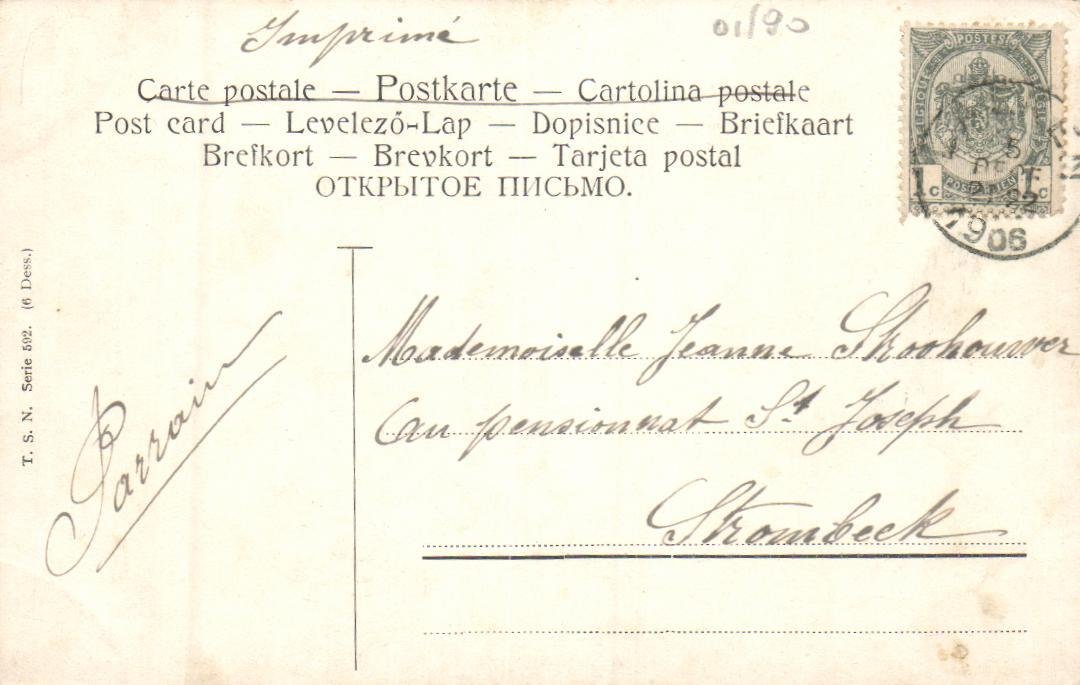 Imprimé
01/90
Carte postale — Postkarte — Cartolina postale
Post card — Levelező-Lap — Dopisnice — Briefkaart
Brefkort — Brevkort — Tarjeta postal
ОТКРЫТОЕ ПИСЬМО.
POSTES
BELGIQUE
BELGIË
POSTERIJEN
1c 1c
5
1906
T. S. N. Serie 592. (6 Dess.)
Parrain
Mademoiselle Jeanne Stroohouwer
au pensionnat St Joseph
Strombeck